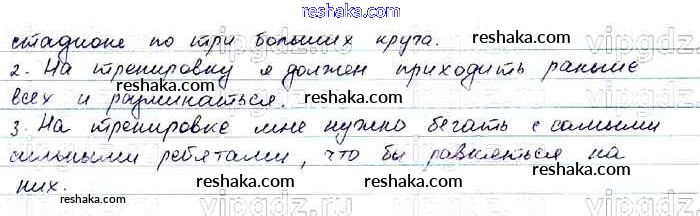 reshaka.com
стадионе по три больших круга. reshaka.com
2. На тренировку я должен приходить раньше
всех и разминаться. reshaka.com reshaka.com
3. На тренировке мне нужно бегать с самыми
сильными ребятами, что бы равняться на
них. reshaka.com reshaka.com reshaka.com
vipgdz.ru